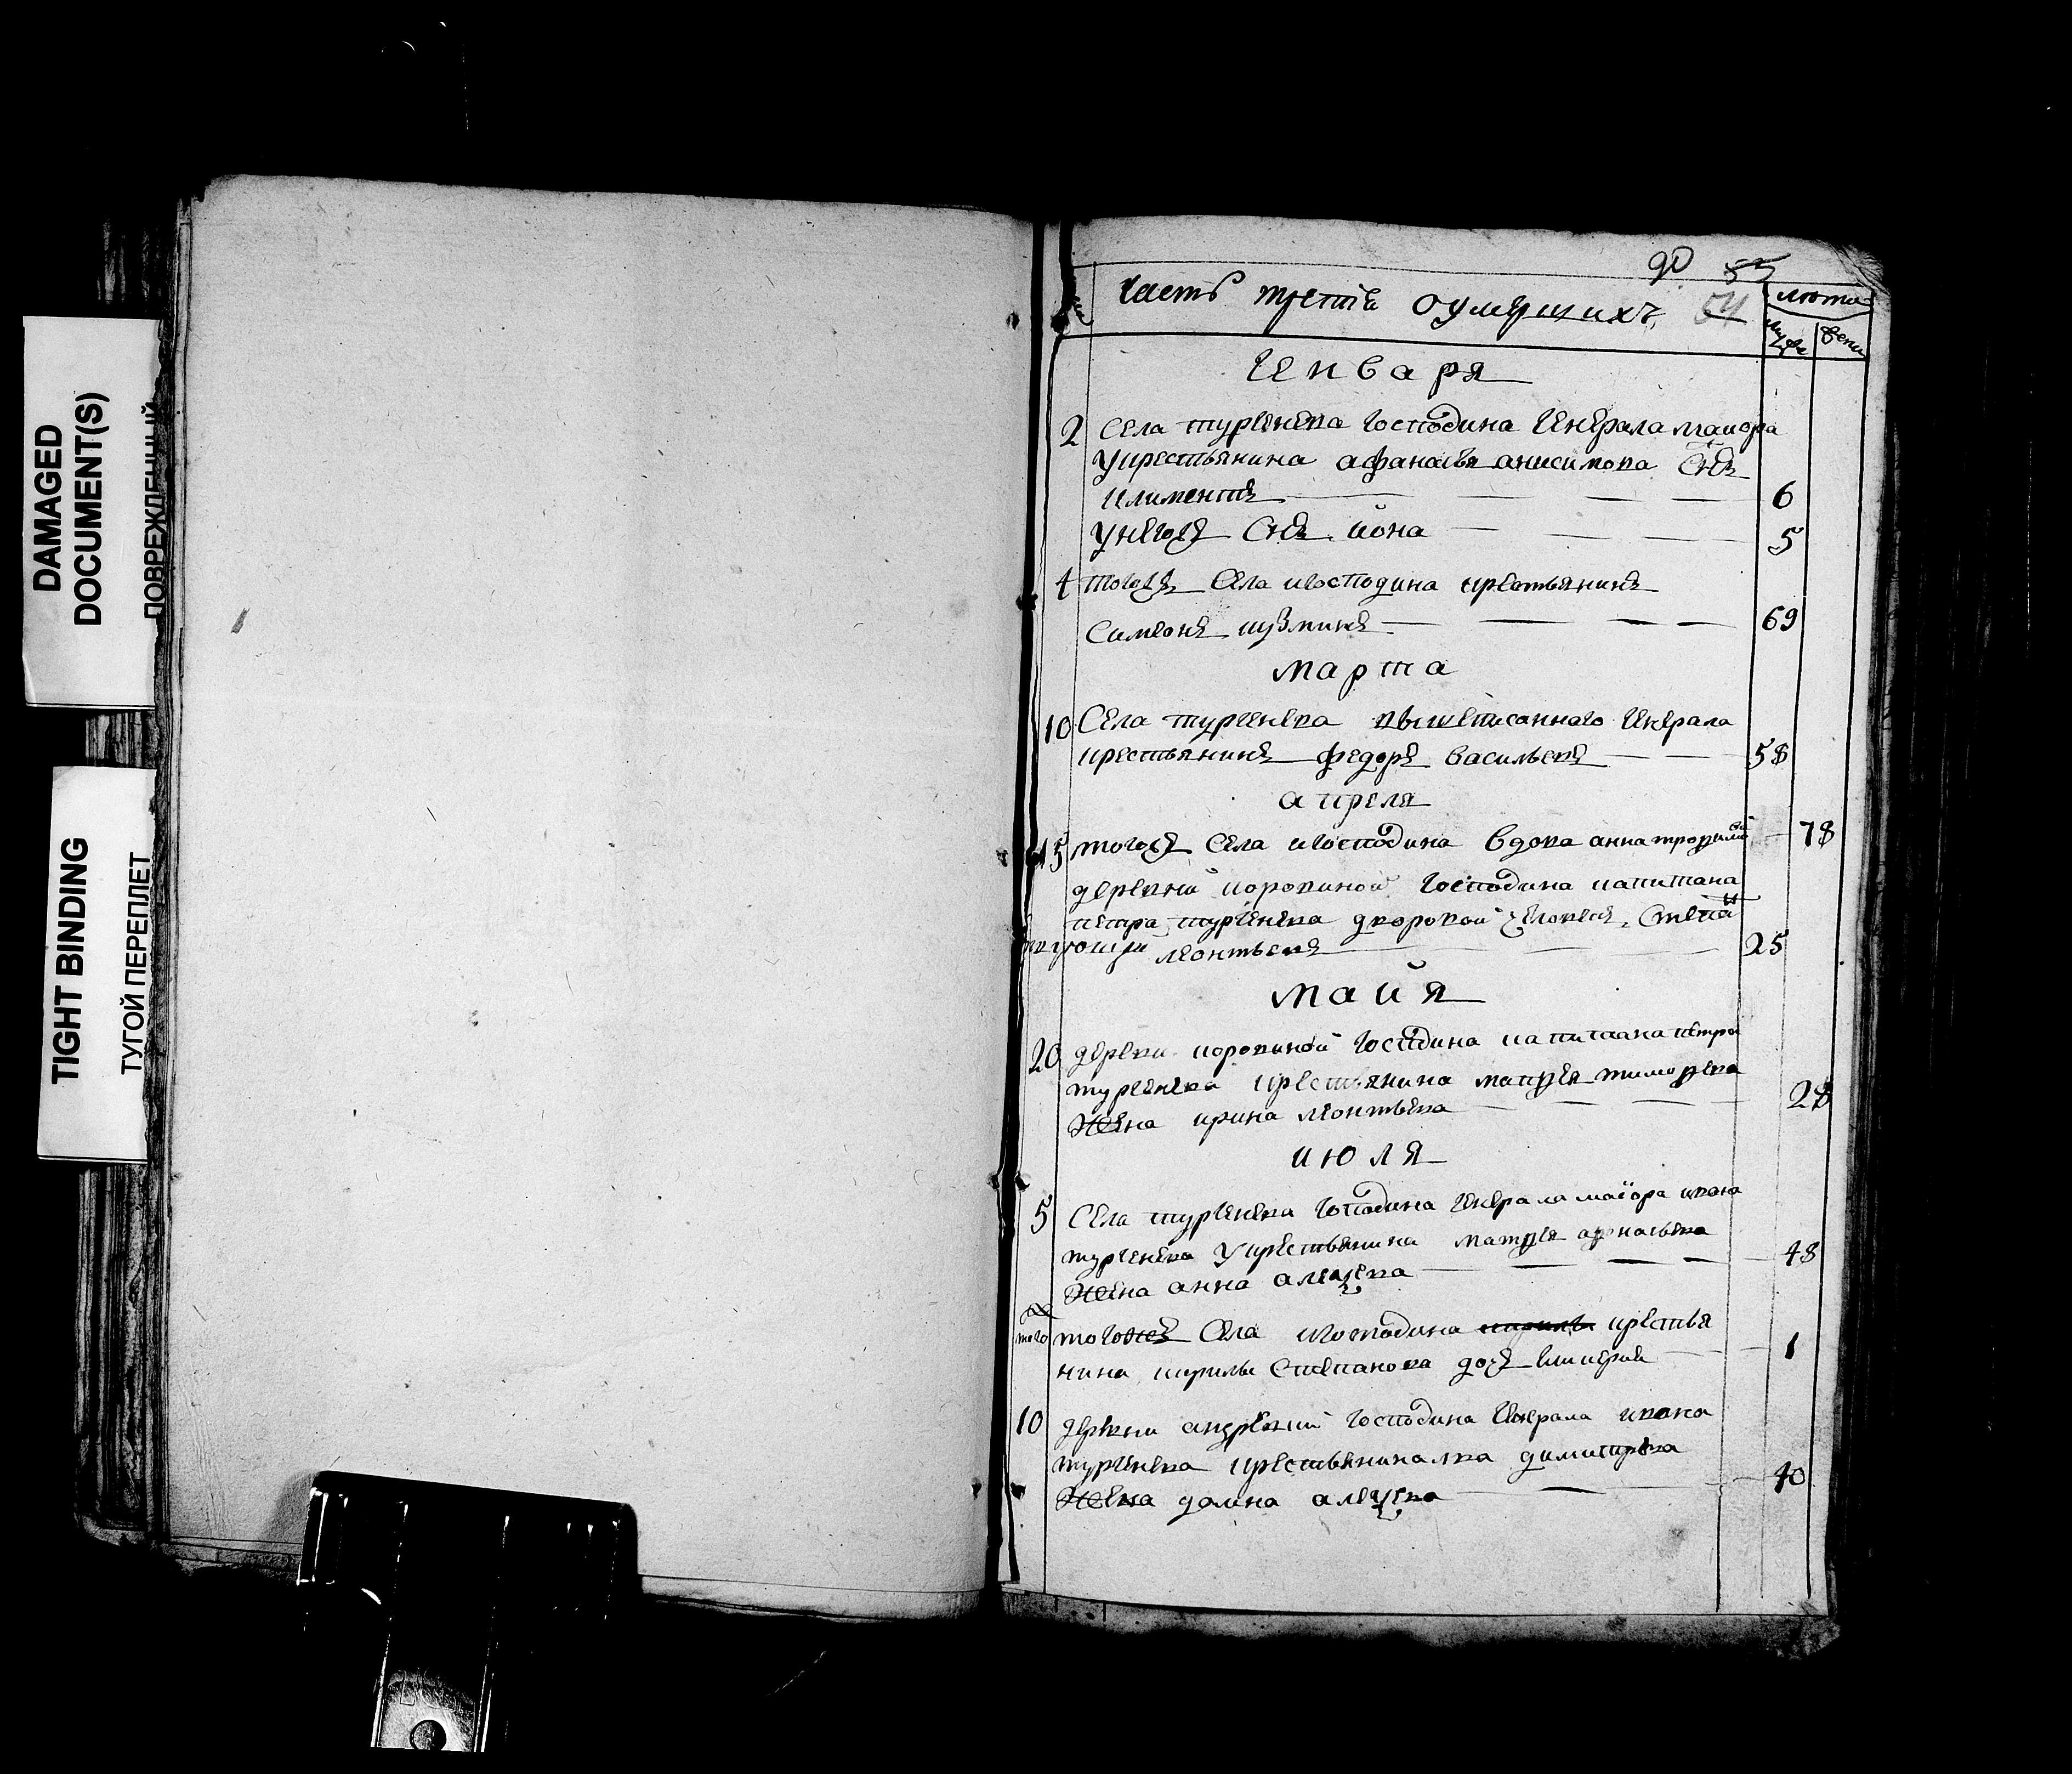 DAMAGED
DOCUMENT(S)
ПОВРЕЖДЕННЫЙ
TIGHT BINDING
ТУГОЙ ПЕРЕПЛЕТ
90 55
часть третія оумерших 54
лѣта
муже жени
Генваря
2 Села тургенева господина Генерала маиора
у крестьянина афанасья анисимова Снъ
климентъ 6
у негожъ Снъ иона 5
4 тогожъ Села игосподина крестьянинъ
Симеонъ кузминъ 69
марта
10 Села тургенева вышеписанного Генерала
крестьянинъ федоръ васильевъ 58
апреля
15 тогожъ Села игосподина вдова анна трофимо 78
деревни коровиной Господина капитана
петра тургенева дворовой человекъ Степа
леонтьевъ 25
майя
20 деревни коровиной Господина капитана петра
тургенева крестьянина матфея тимофеева
жена ирина леонтьева 28
июля
5 Села тургенева Господина Генерала маіора ивана
тургенева у крестьянина матфея афнасьева
жена анна алексеева 48
того тогожъ Села игосподина крестья
нина кирилы Степанова дочь 1
10 деревни андреевки Господина Генерала ивана
тургенева крестьянина лва димитрева
жена домна алексеева 40